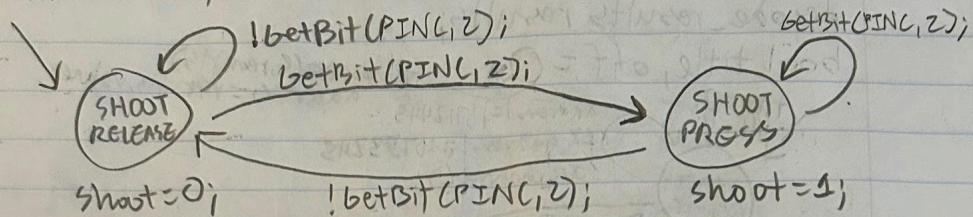 !GetBit(PINC,2);
GetBit(PINC,2);
GetBit(PINC,2);
SHOOT
RELEASE
SHOOT
PRESS
shoot=0;
!GetBit(PINC,2);
shoot=1;